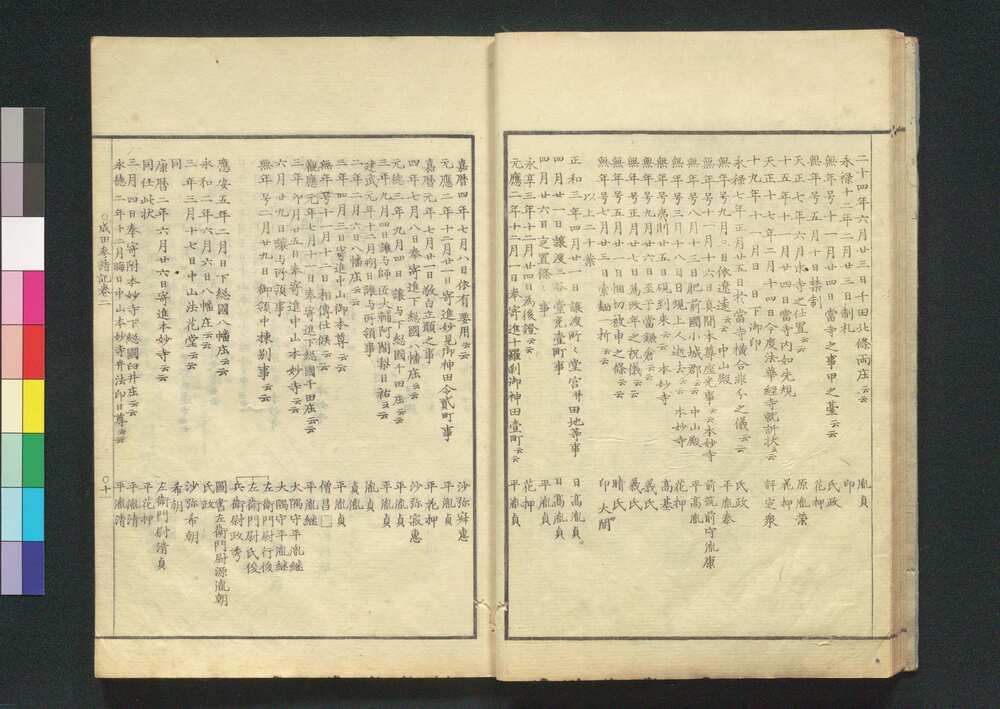 二十四年六月廿三日千田北條両庄云云 胤貞
永禄十二年二月廿三日制札 印
無年号十一月廿四日當寺之事甲之臺云云 氏政
無年号五月十日禁制 花押
天正七年六月 求寺之仕置云云 原胤榮
十五年十一月廿四日當寺内如先規 花押
天正十七年二月十四日今度法華經寺就訴状云云 評定衆
十九年十一月 日下御印
永禄七年正月廿五日於當寺横合非分之儀云云 氏政
無年号九月三日依遼遠云云 中山殿 平胤泰
無年号十一月十六日真間本尊虚光事云云 本妙寺 前筑前守胤康
無年号八月十三日肥前國小城郡云云 中山殿 平高胤
無年号三月十八日現上人逝去云云 本妙寺 花押
無年号 到来云云 本妙寺 高基
無年号六月 至于當鎌倉云云 義氏
無年号七月七日為改年之祝儀云云 義氏
無年号五月一日一切一被申之條云云 晴氏
無年号五月三日索麺一折云云 印 大閤
以上二十葉
正和三年四月廿一日 譲渡町々堂宮并田地等事 日高胤貞
四月廿一日譲渡三谷堂免壹町事 日高胤貞
四月廿六日定置條々事 平胤貞
永享三年十二月廿四日為後證云云 花押
元應二年十二月一日奉寄進十羅刹御神田壹町云云 平胤貞
嘉暦四年七月八日依有要用云云 沙弥寂恵
元應二年十二月一日寄進妙見御神田合貳町事 平胤貞
嘉暦元年七月廿一日敬白立願之事 平花押
四年七月八日奉寄進下総國八幡庄云云 沙弥寂恵
元徳三年九月四日 譲与下総國千田庄云云 平胤貞
三年九月四日譲与師匠大輔阿闍梨日祐云云 平胤貞
建武元年十二月朔日譲与所領事 胤貞
二年二月六日八幡庄云云 貞胤
三年四月三日寄進中山御本尊云云 平胤貞
無年号十一月十一日相傳仕候云云 僧昌□
観應元年七月十二日奉寄進下総國千田庄云云 平胤継
三年 卯月五日奉寄進中山本妙寺云云 大隅守平胤継
六月廿九日譲与所領事 大隅守平胤継
無年号二月廿九日御領中棟別事云云 左衛門尉行俊
左衛門尉氏俊
兵衛尉政秀
應安五年二月日下総國八幡庄云云 圖書左衛門尉源胤朝
永和二年六月六日八幡庄云云 氏政
三年三月十七日中山法花堂云云 沙弥希朝
同 希朝
康暦二年六月廿六日寄進本妙寺云云 左衛門尉清貞
同任此状 平花押
三月四日奉寄附本妙寺下総國臼井庄云云 平胤清
永徳二年十二月晦日中山本妙寺弁法印日尊云云 平胤清
○成田参詣記巻二 ○十一